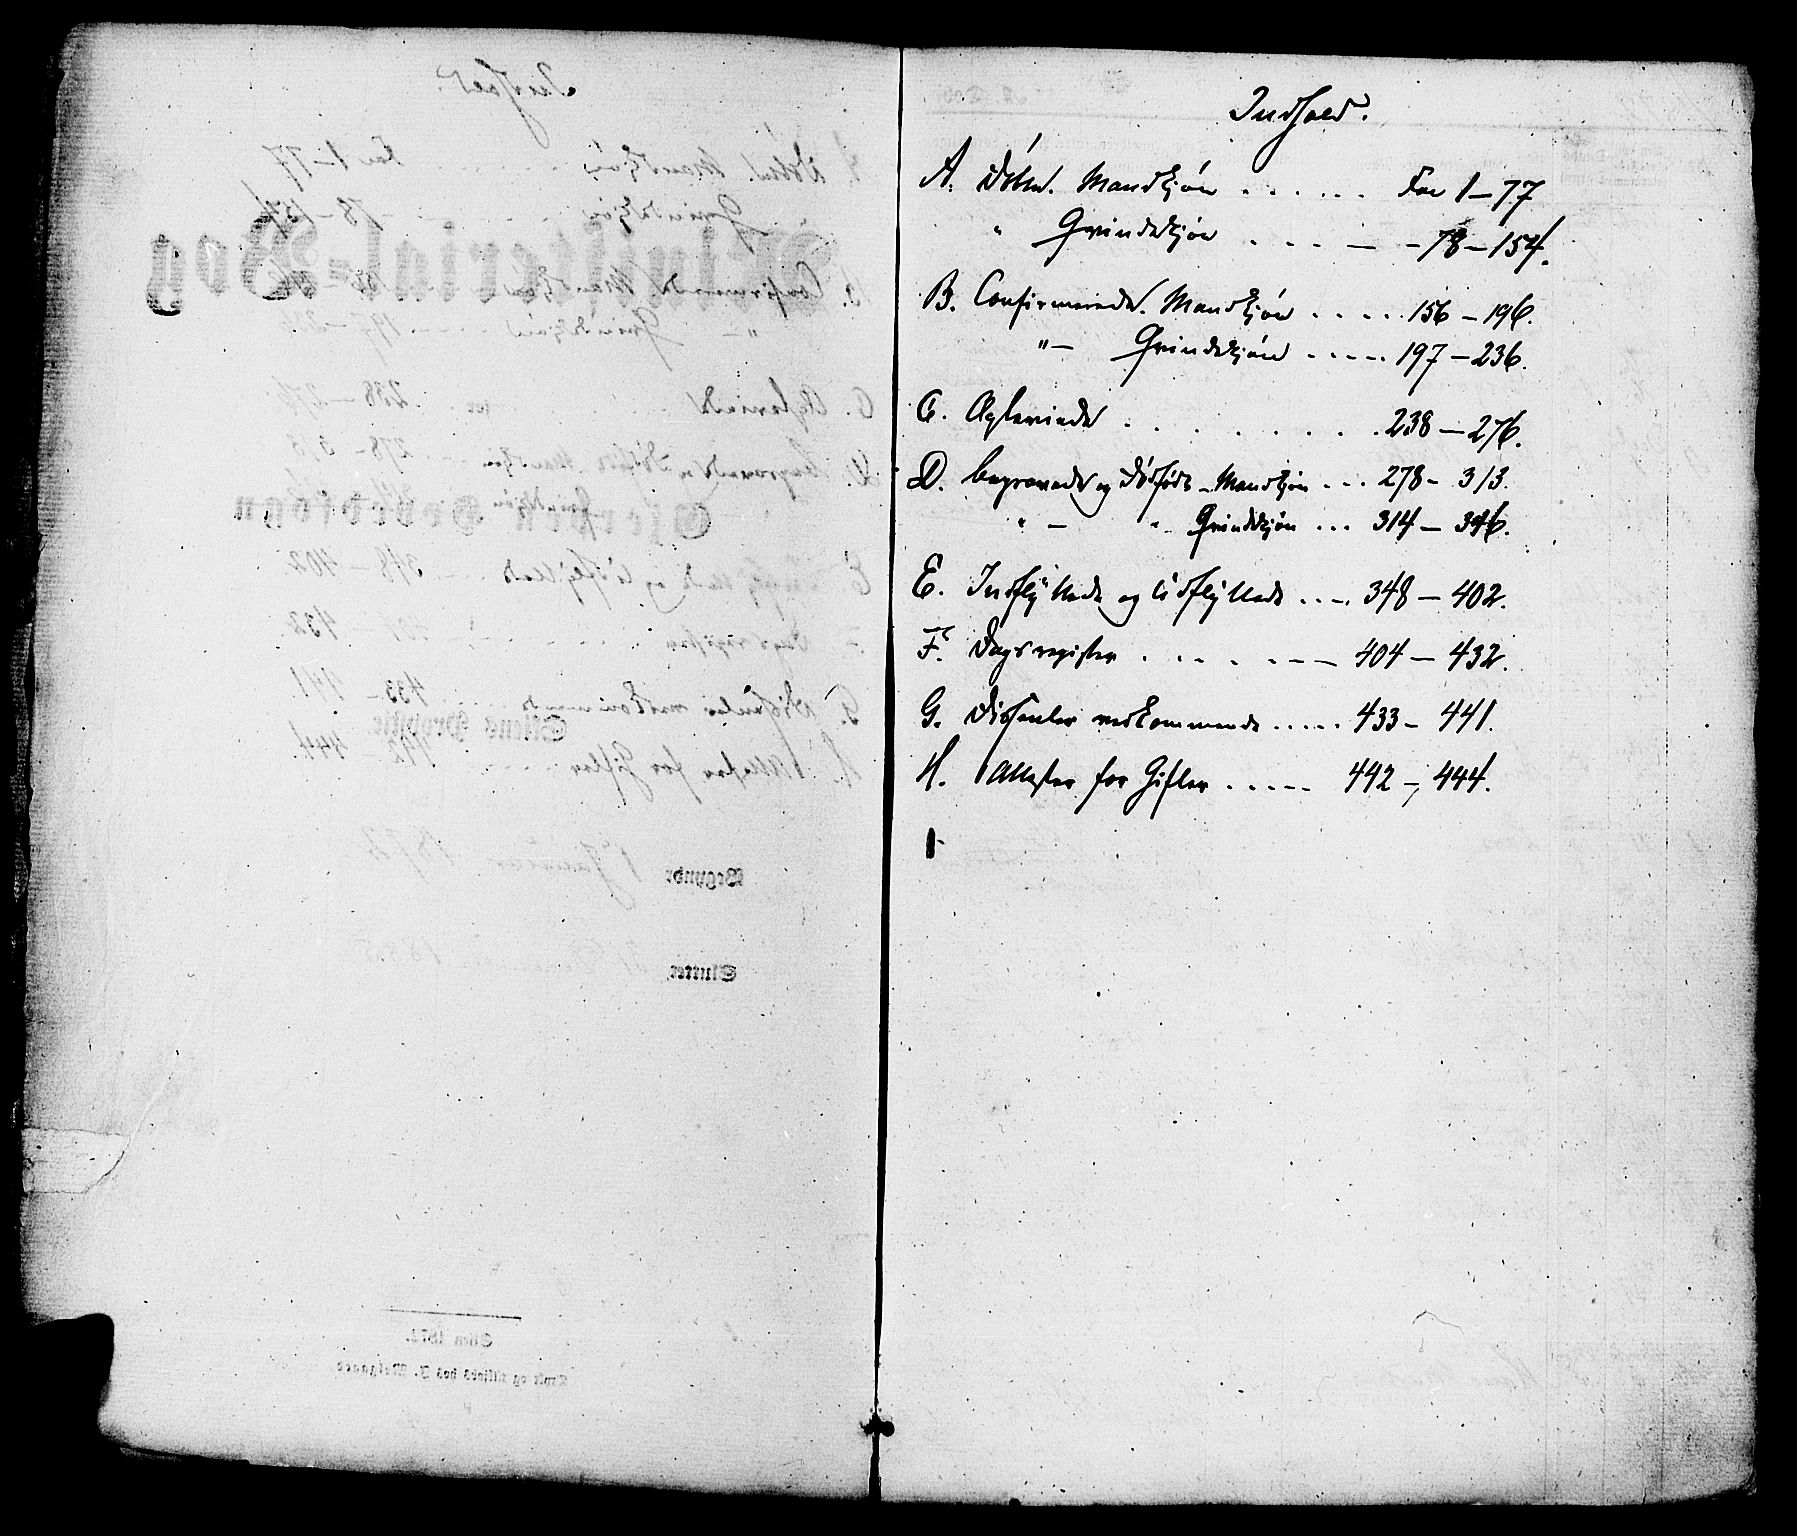 Indhold.
A. Døbte. Mandkjøn ...... Fra 1–77
" Qvindekjøn ....– - 78–154.
B. Confirmerede. Mandkjøn ..... 156–196.
"– Qvindekjøn ..... 197–236.
C. Ægteviede ......... 238–276.
D. Begravede og Dødfødte - Mandkjøn ... 278- 313.
" – " Qvindekjøn ... 314–346.
E. Indflyttede og Udflyttede .... 348–402.
F. Dagsregister ...... 404–432.
G. Dissenter vedkommende ..... 433– 441.
H. Attester for Gifter ..... 442–444.